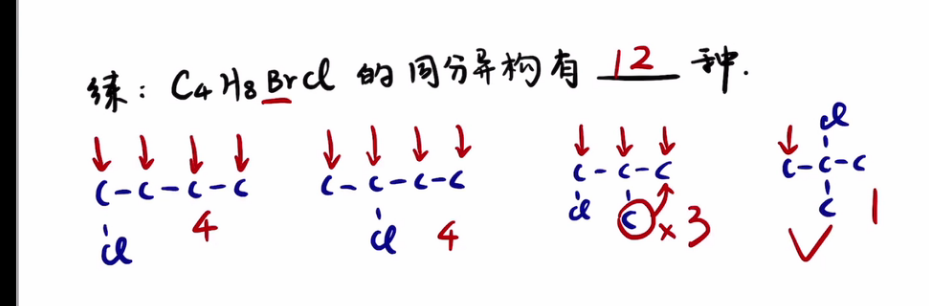 练：C₄H₈BrCl 的同分异构有 12 种.
C-C-C-C
Cl
4
C-C-C-C
Cl
4
C-C-C
Cl
C
×3
Cl
C-C-C
C
1